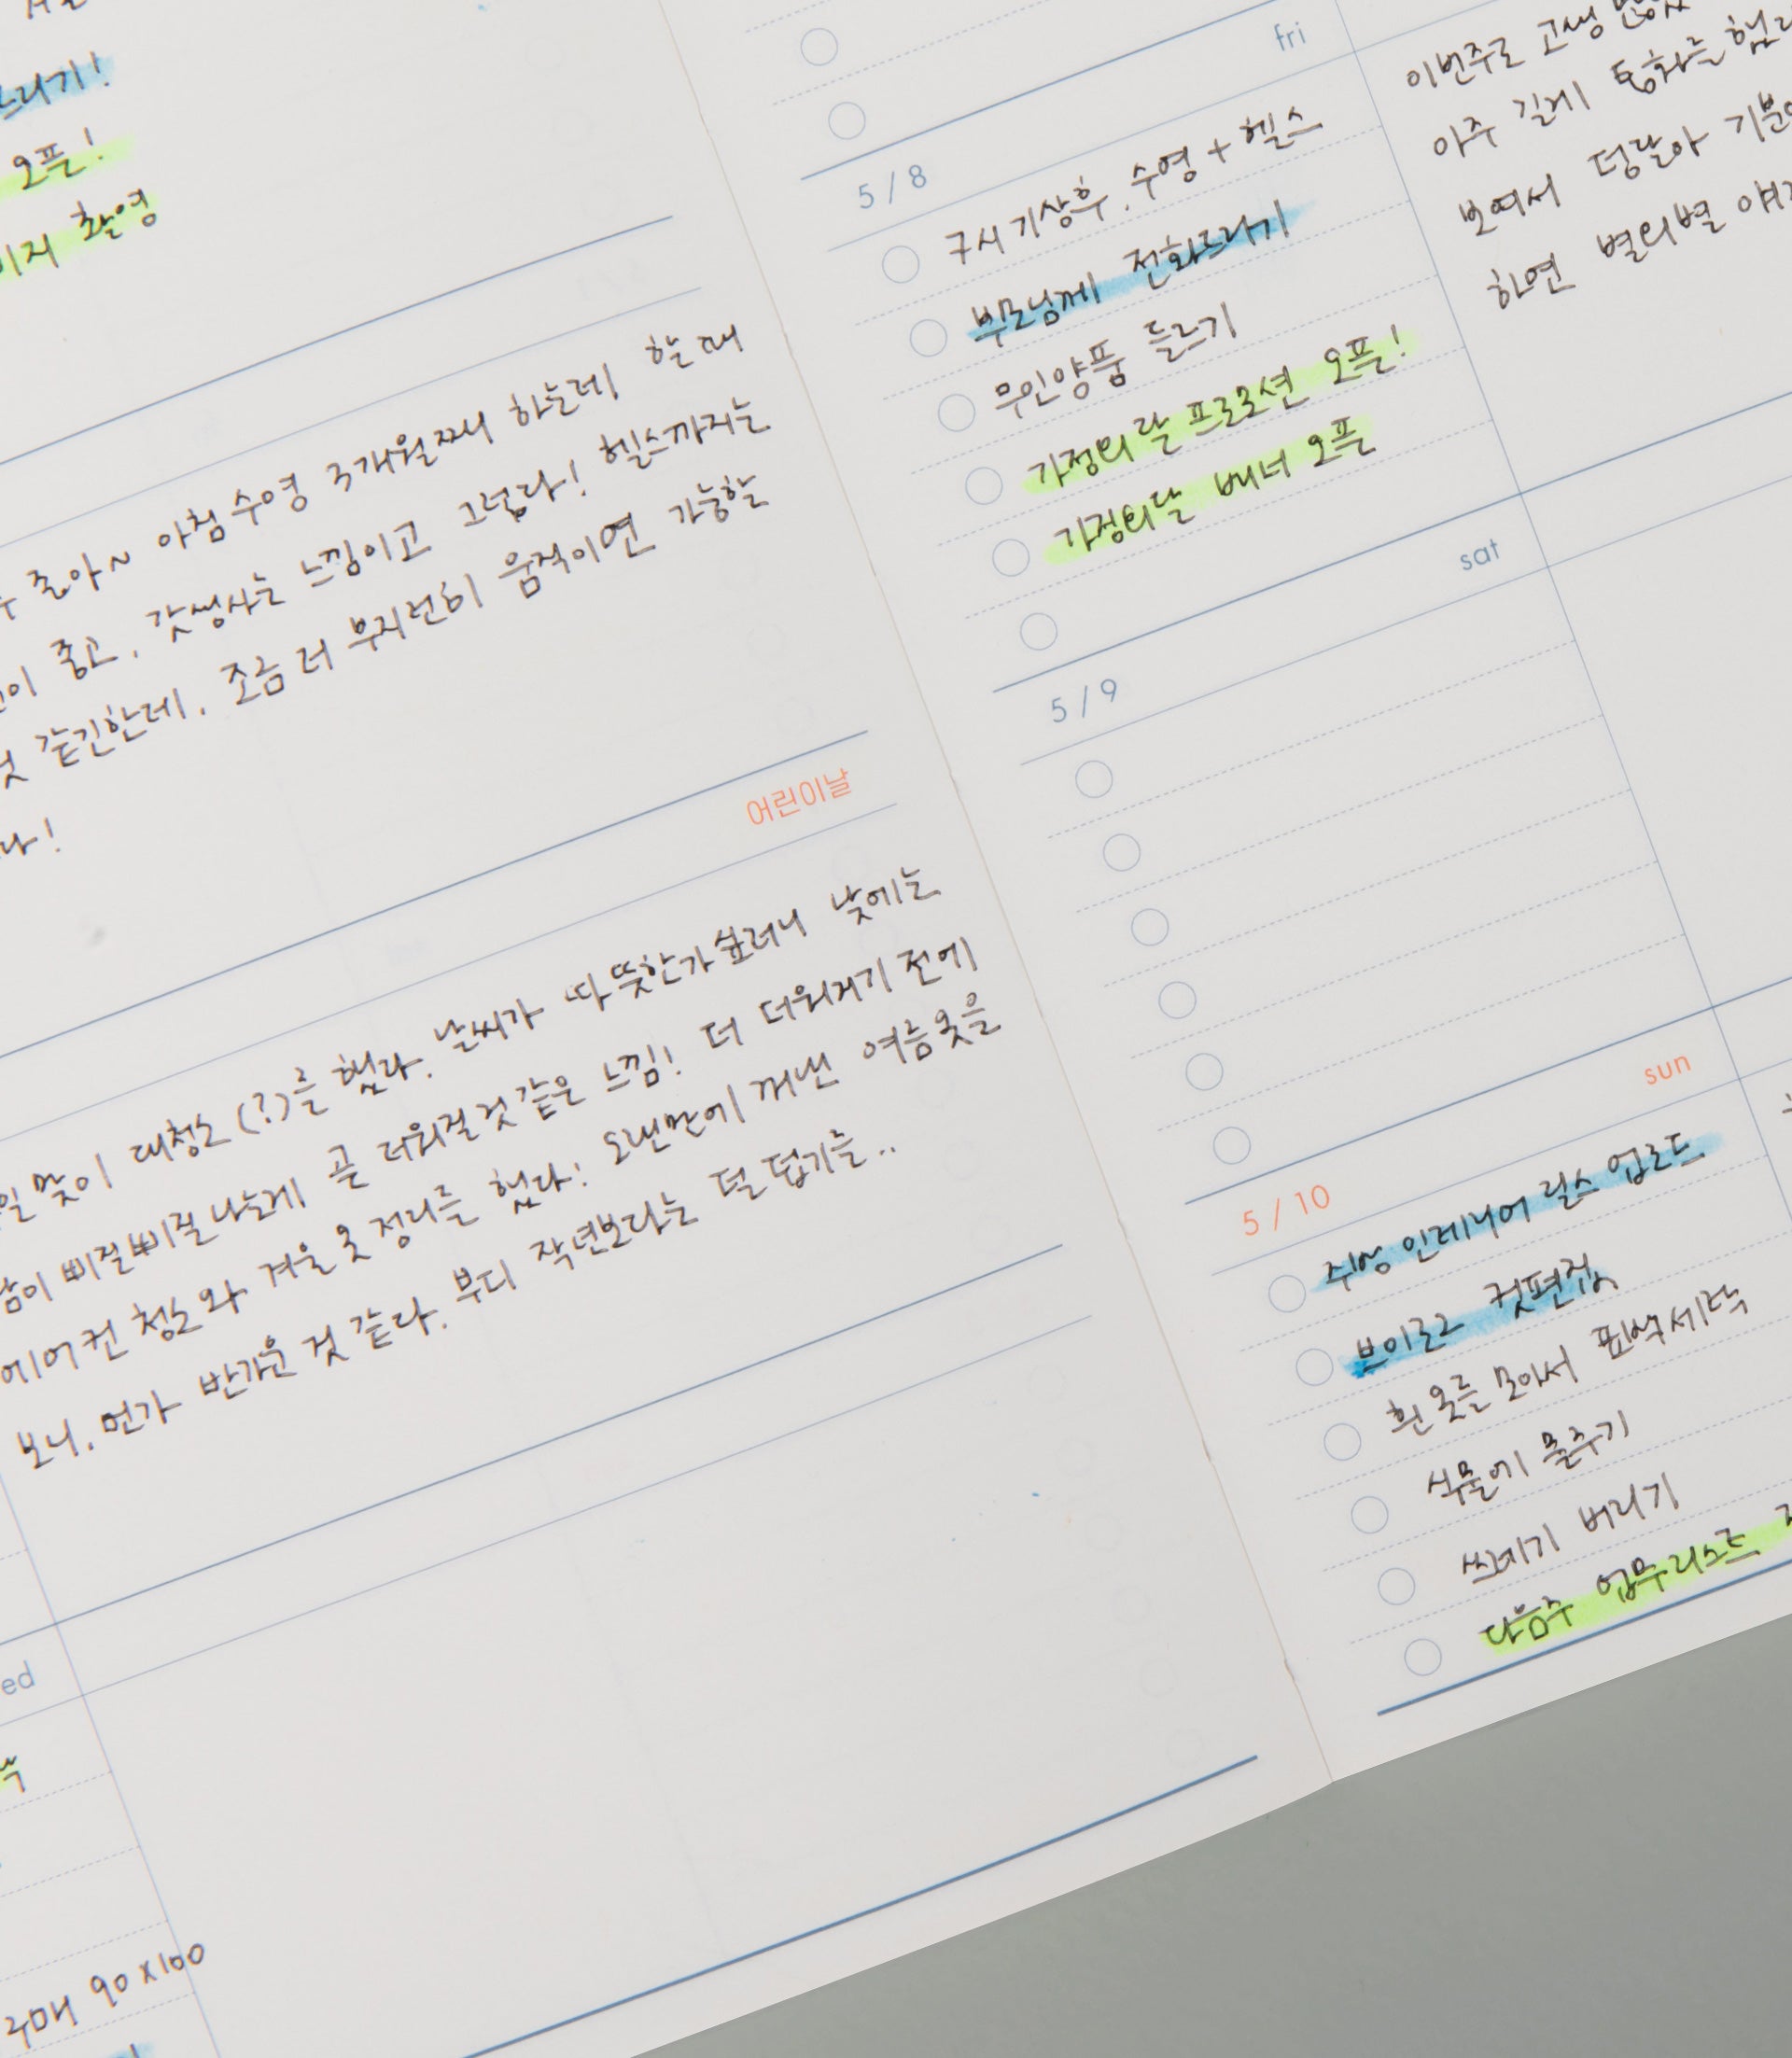 오픈!
촬영
좋아~ 아침 수영 3개월째 하는데 할 때
좋고, 갓생사는 느낌이고 그렇다! 헬스까지는
것 같긴한데, 조금 더 부지런히 움직이면 가능할
다!
어린이날
맞이 대청소(?)를 했다. 날씨가 따뜻한가 싶더니 낮에는
땀이 삐질삐질 나는게 곧 더워질 것 같은 느낌! 더 더워지기 전에
에어컨 청소와 겨울 옷 정리를 했다! 오랜만에 꺼낸 여름옷을
보니, 먼가 반가운 것 같다. 부디 작년보다는 덜 덥기를..
ed
구매 90x100
fri
5 / 8
7시 기상후, 수영 + 헬스
부모님께 전화드리기
무인양품 들르기
가정의 달 프로모션 오픈!
가정의달 배너 오픈
sat
5 / 9
sun
5 / 10
취향 인테리어 릴스 업로드
브이로그 컷편집
흰 옷들 모아서 표백세탁
식물에 물주기
쓰레기 버리기
다음주 업무리스트
이번주로 고생
아주 길게 통화를 했다
보여서 덩달아
하면 별의별